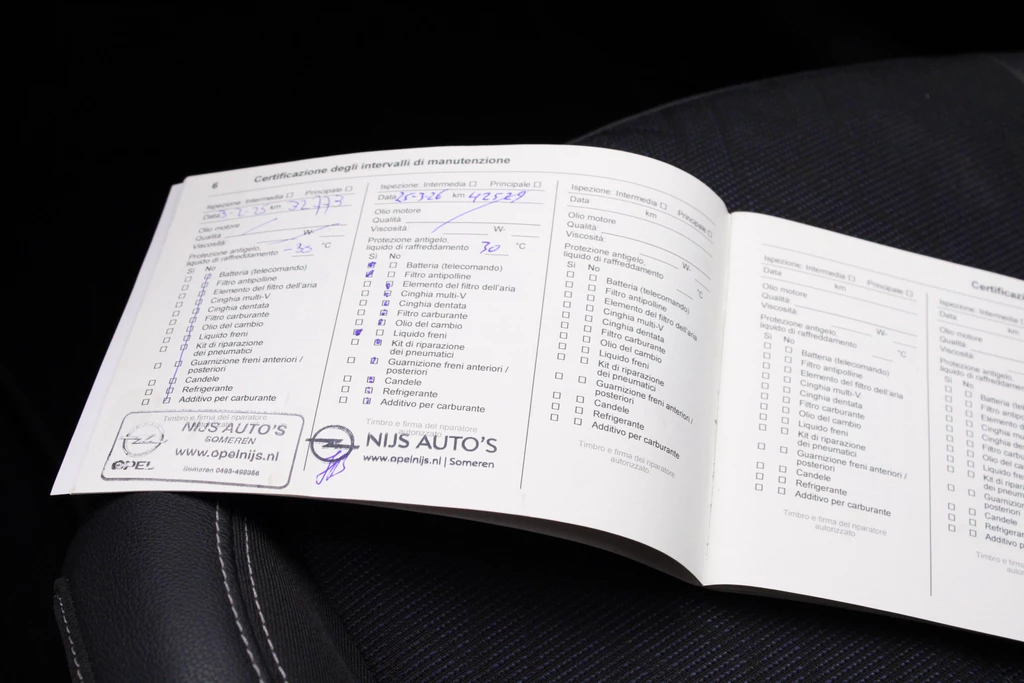 6
Certificazione degli intervalli di manutenzione
Ispezione: Intermedia □ Principale □
Data 3-2-25 km 32773
Olio motore
Qualità
Viscosità W-
Protezione antigelo,
liquido di raffreddamento -30 °C
Si No
Batteria (telecomando)
Filtro antipolline
Elemento del filtro dell'aria
Cinghia multi-V
Cinghia dentata
Filtro carburante
Olio del cambio
Liquido freni
Kit di riparazione
dei pneumatici
Guarnizione freni anteriori /
posteriori
Candele
Refrigerante
Additivo per carburante
Timbro e firma del riparatore
NIJS AUTO'S
SOMEREN
www.opelnijs.nl
OPEL
Someren
Ispezione: Intermedia □ Principale □
Data 25-3-26 km 42529
Olio motore
Qualità
Viscosità W-
Protezione antigelo,
liquido di raffreddamento 30 °C
Si No
Batteria (telecomando)
Filtro antipolline
Elemento del filtro dell'aria
Cinghia multi-V
Cinghia dentata
Filtro carburante
Olio del cambio
Liquido freni
Kit di riparazione
dei pneumatici
Guarnizioni freni anteriori /
posteriori
Candele
Refrigerante
Additivo per carburante
Timbro e firma del riparatore
NIJS AUTO'S
www.opelnijs.nl | Someren
Ispezione: Intermedia □ Principale □
Data km
Olio motore
Qualità
Viscosità W-
Protezione antigelo,
liquido di raffreddamento °C
Si No
Batteria (telecomando)
Filtro antipolline
Elemento del filtro dell'aria
Cinghia multi-V
Cinghia dentata
Filtro carburante
Olio del cambio
Liquido freni
Kit di riparazione
dei pneumatici
Guarnizioni freni anteriori /
posteriori
Candele
Refrigerante
Additivo per carburante
Timbro e firma del riparatore
autorizzato
Ispezione: Intermedia □ Principale □
Data km
Olio motore
Qualità
Viscosità W-
Protezione antigelo,
liquido di raffreddamento °C
Si No
Batteria (telecomando)
Filtro antipolline
Elemento del filtro dell'aria
Cinghia multi-V
Cinghia dentata
Filtro carburante
Olio del cambio
Liquido freni
Kit di riparazione
dei pneumatici
Guarnizioni freni anteriori /
posteriori
Candele
Refrigerante
Additivo per carburante
Timbro e firma del riparatore
autorizzato
Ispezione: Intermedia
Data km
Olio motore
Qualità
Viscosità
Protezione antigelo,
Si No
Candele